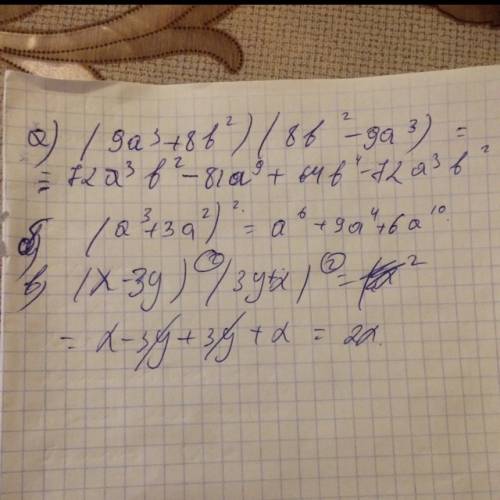 а) (9a³+8b²)(8b²-9a³) =
= 72a³b²-81a⁹+64b⁴-72a³b²
б) (a³+3a²)² = a⁶+9a⁴+6a¹⁰
в) (x-3y)² (3y+x)² =
= x-3y+3y+x = 2x.